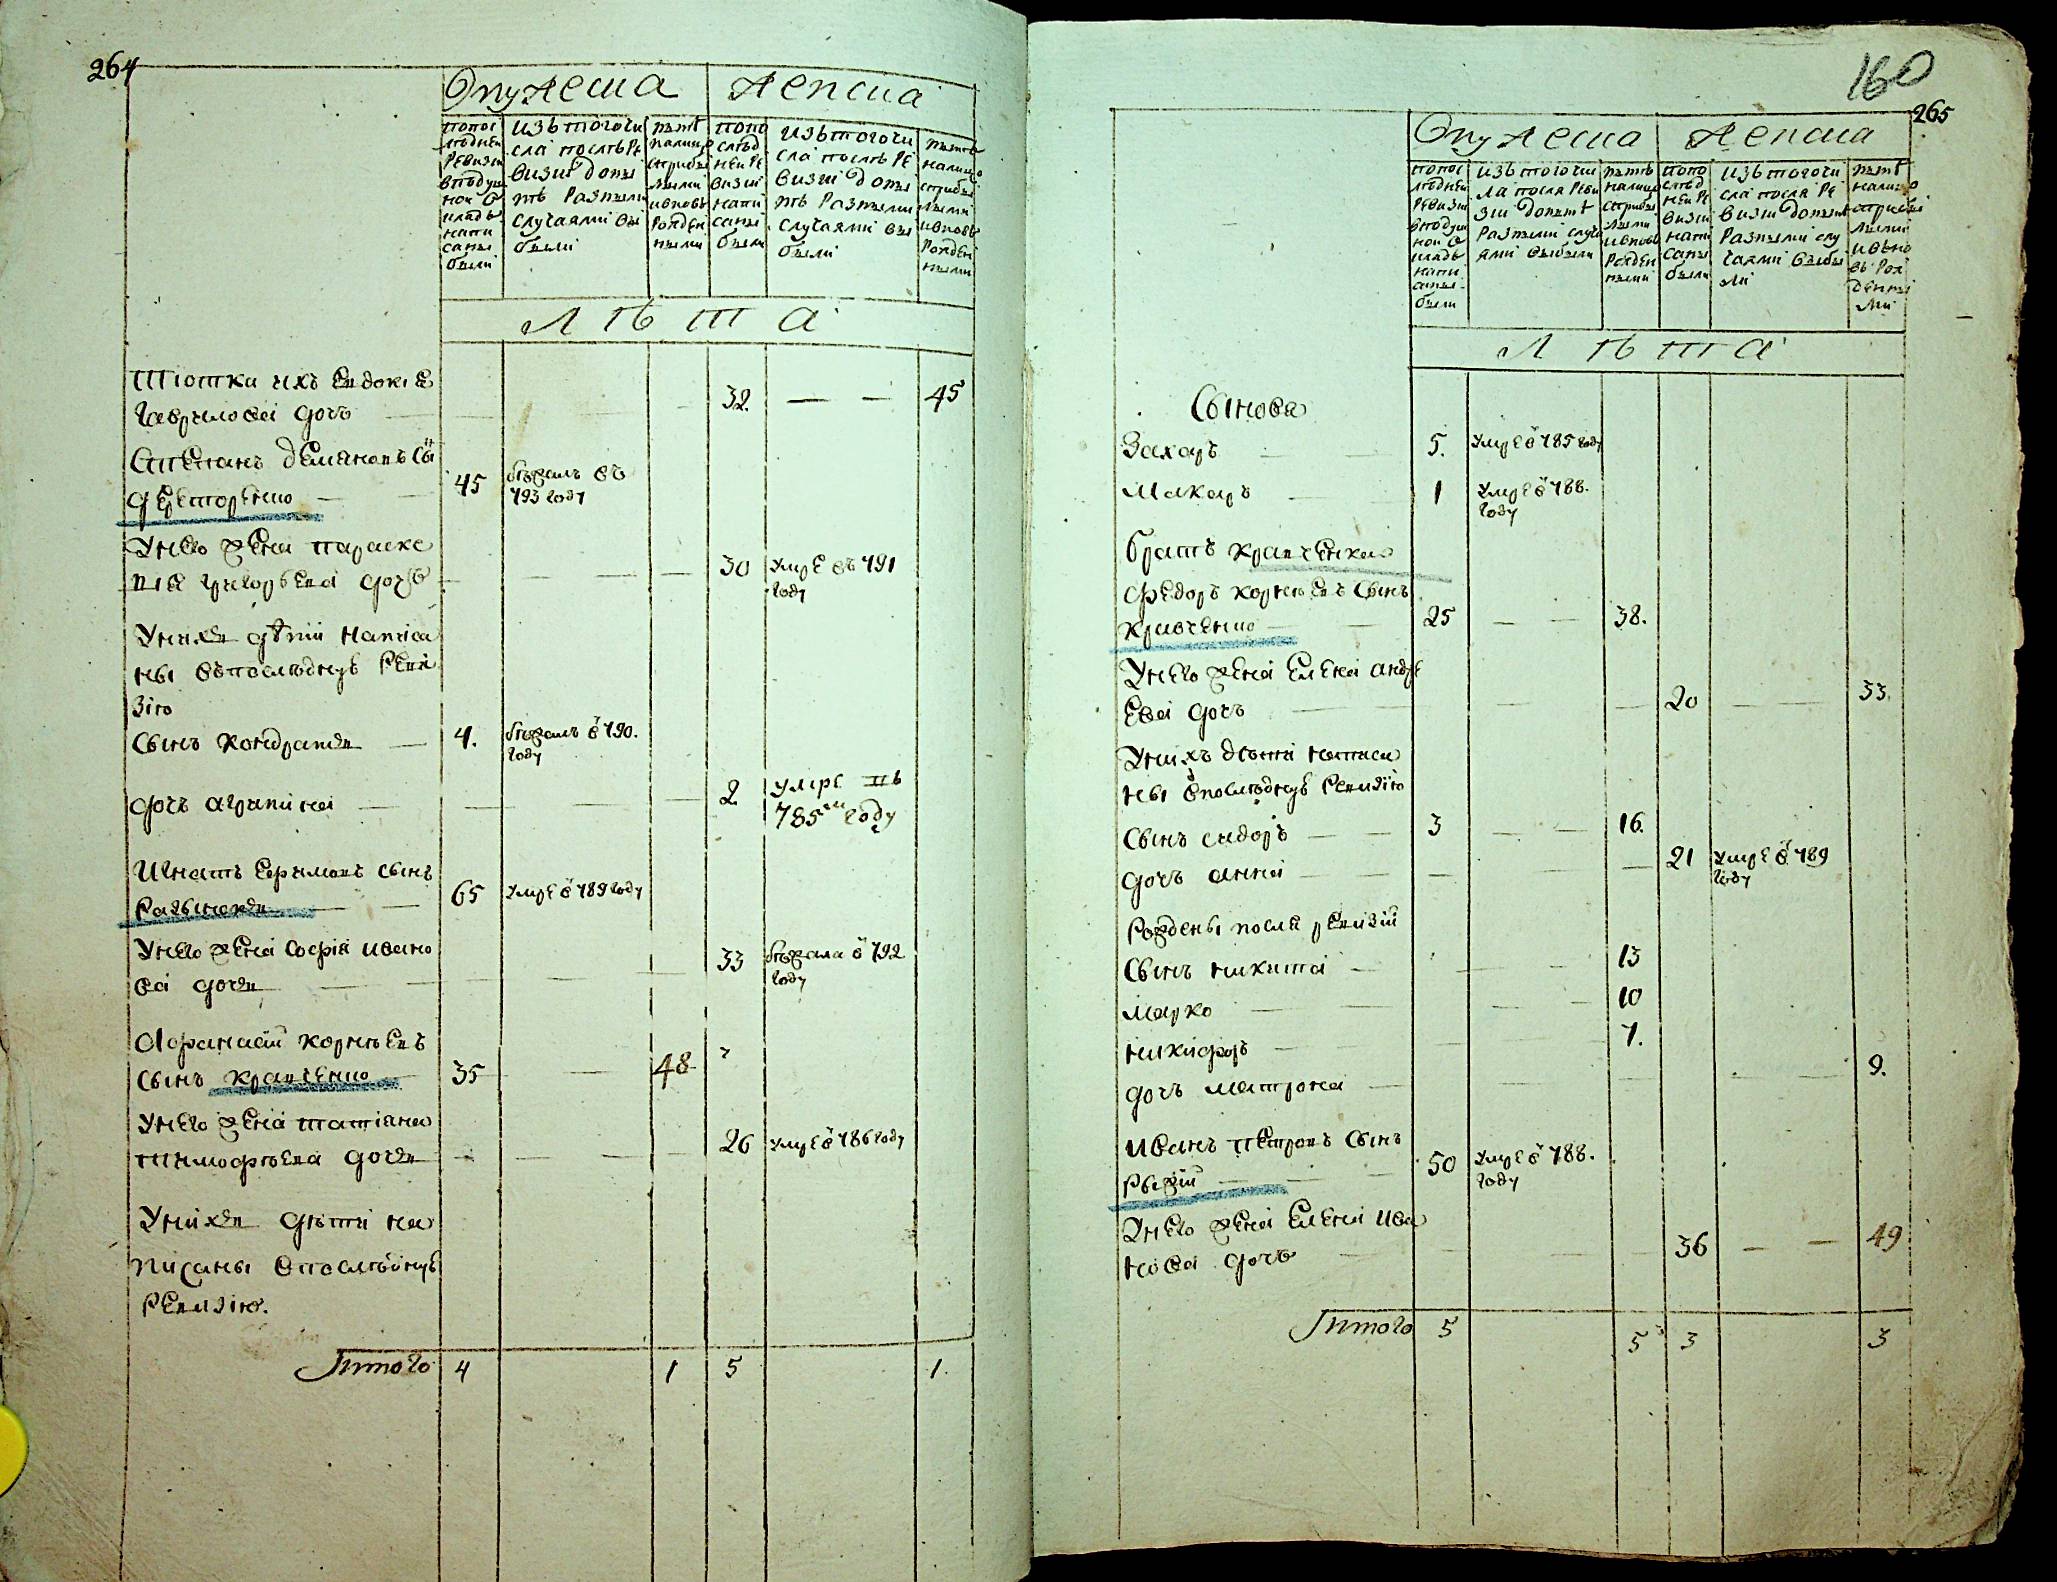 264
О мужеска
женска
попос
лѣдней
ревизи
вподуш
ной о
кладъ
напи
саны
были
изъ того чи
сла послѣ ре
визии до ны
нѣ разными
случаями вы
были
нынѣ
налицо
сприбы
лыми
ивновь
рожден
ными
попо
слѣд
ней ре
визии
напи
саны
были
изъ того чи
сла послѣ ре
визии до ны
нѣ разными
случаями вы
были
нынѣ
налицо
сприбы
лыми
ивновь
рожден
ными
Л ѣ т а
Тіотка ихъ Евдокіе
Гаврилова дочь 32. — — 45
Степанъ Демяновъ сы
45 бѣжалъ въ
793 году
Унего жена Параске
вия Григорьева дочь 30 умре въ 791
году
Унихъ дѣти написа
ны въпослѣдную реви
зію
Сынъ Кондратъ — 4. бѣжалъ в 790.
году
дочь Агрипина — 2 умре въ
785м году
Игнатъ Ефимовъ сынъ
65 умре в 789 году
Унего жена Софія Ивано
ва дочь 33 бѣжала в 792
году
Афанасій Корнѣевъ
сынъ Кравченко 35 — 48
Унего жена Татіана
Тимофѣева дочь 26 умре в 786 году
Унихъ дѣти на
писаны впослѣднуѣ
ревизію.
Итого 4 1 5 1.
160
265
О мужеска
женска
попос
лѣдней
ревизи
вподуш
ной о
кладъ
напи
саны
были
изъ того чис
ла посля реви
зии до нынѣ
разными случа
ями выбыли
нынѣ
налицо
сприбы
лыми
ивновь
рожден
ными
попо
слѣд
ней ре
визии
напи
саны
были
изъ того чи
сла посля ре
визии до нынѣ
разными слу
чаями выбы
ли
нынѣ
налицо
сприбы
лыми
ивьно
вь рож
денны
ми
Л ѣ т а
Сынова
Захаръ 5. умре в 785 году
Макаръ 1 умре в 788.
году
братъ Кравченка
Федоръ Корнѣевъ сынъ
Кравченко 25 — — 38.
Унего жена Елена Андре
ева дочь 20 33.
Унихъ дѣти написа
ны впослѣднуѣ ревизію
Сынъ Сидоръ 3 16.
дочь Анна 21 умре в 789
году
Рождены посля ревизіи
Сынъ Никита 13
Марко 10
Никифоръ 7.
дочь Матрона 9.
Иванъ Петровъ сынъ
Рыжій 50 умре в 788.
году
Унего жена Елена Ива
нова дочь 36 — — 49
Итого 5 5 3 3